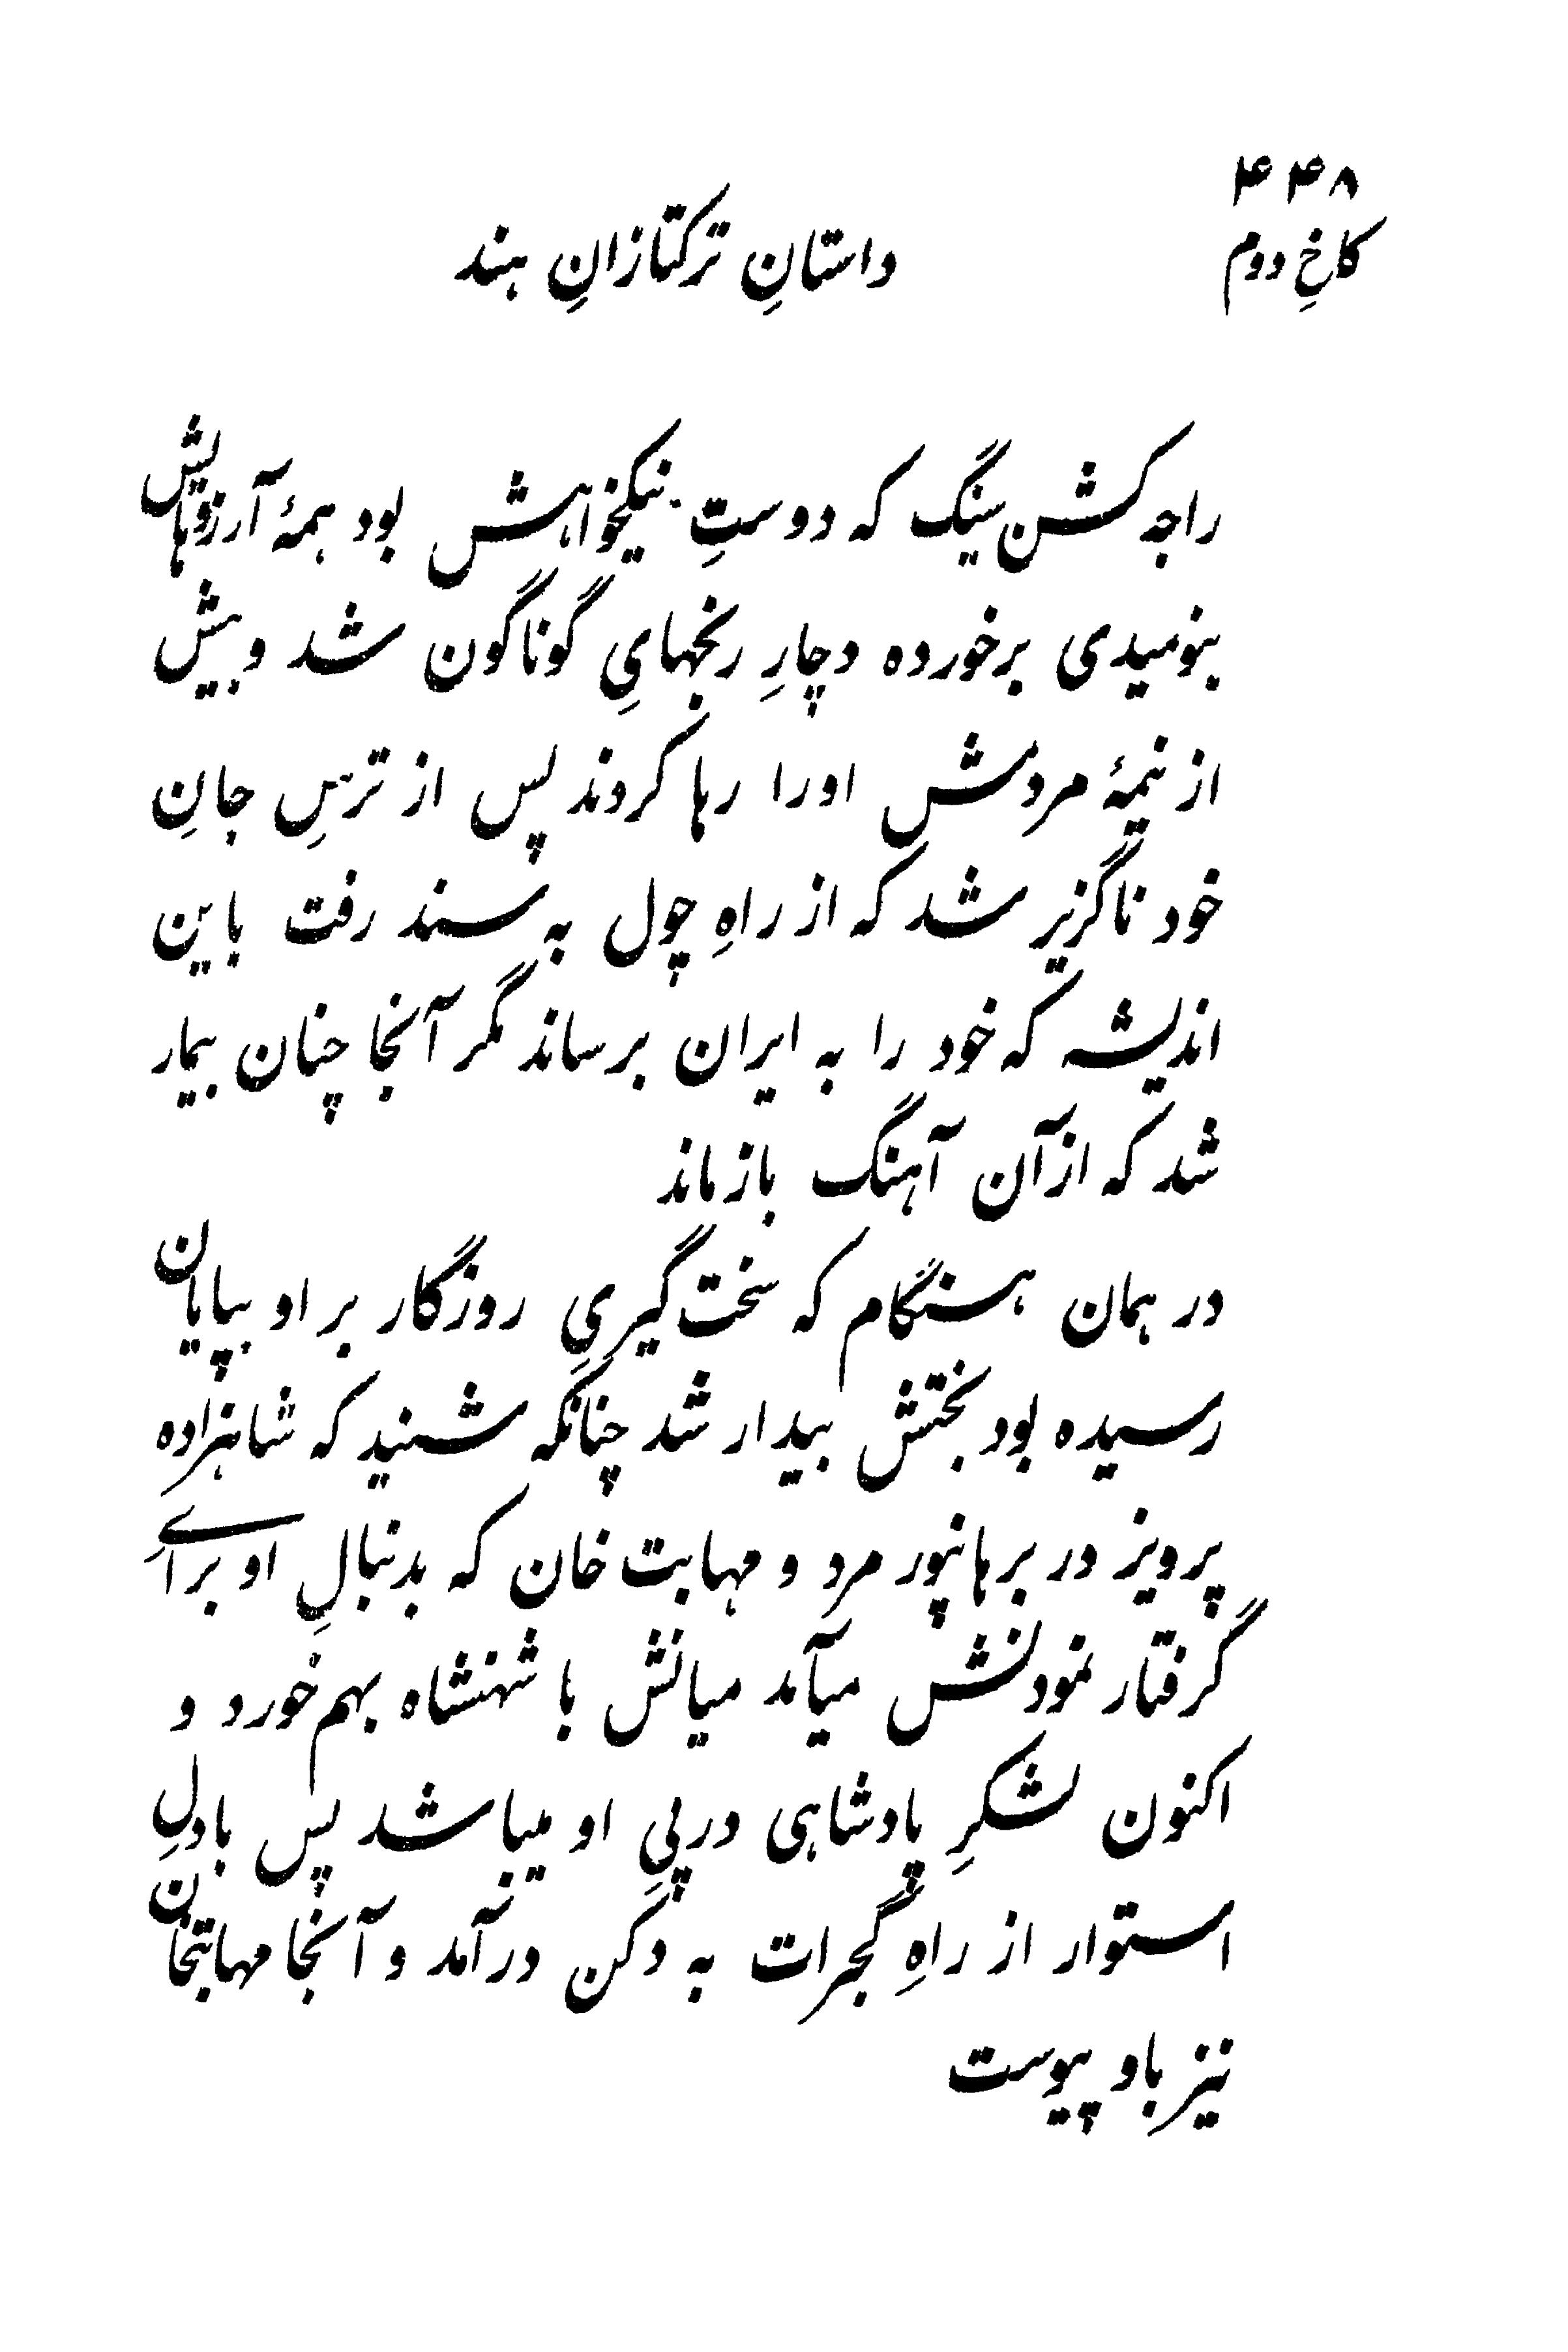 ۴۴۸
کاخِ دوم
داستانِ ترکتازانِ هند
راجه کشن سینگ که دوستِ نیکخواهش بود همهٔ آرزوهایش
بنومیدی برخورده دچارِ رنجهایِ گوناگون شد و بیش
از نیمهٔ مردمش اورا رها کردند پس از ترسِ جانِ
خود ناگزیر شد که از راهِ چول به سند رفت باین
اندیشه که خود را به ایران برساند مگر آنجا چنان بیمار
شد که از آن آهنگ بازماند
در همان هنگام که سخت گیریِ روزگار بر او بپایان
رسیده بود بختش بیدار شد چنانکه شنید که شاهزاده
پرویز در برهانپور مرد و مهابت خان که بدنبالِ او برایِ
گرفتار نمودنش میآمد میانش با شهنشاه بهم خورد و
اکنون لشکرِ پادشاهی در پیِ او میباشد پس بادلِ
استوار از راهِ گجرات به دکن درآمد و آنجا مهابتخان
نیز باو پیوست